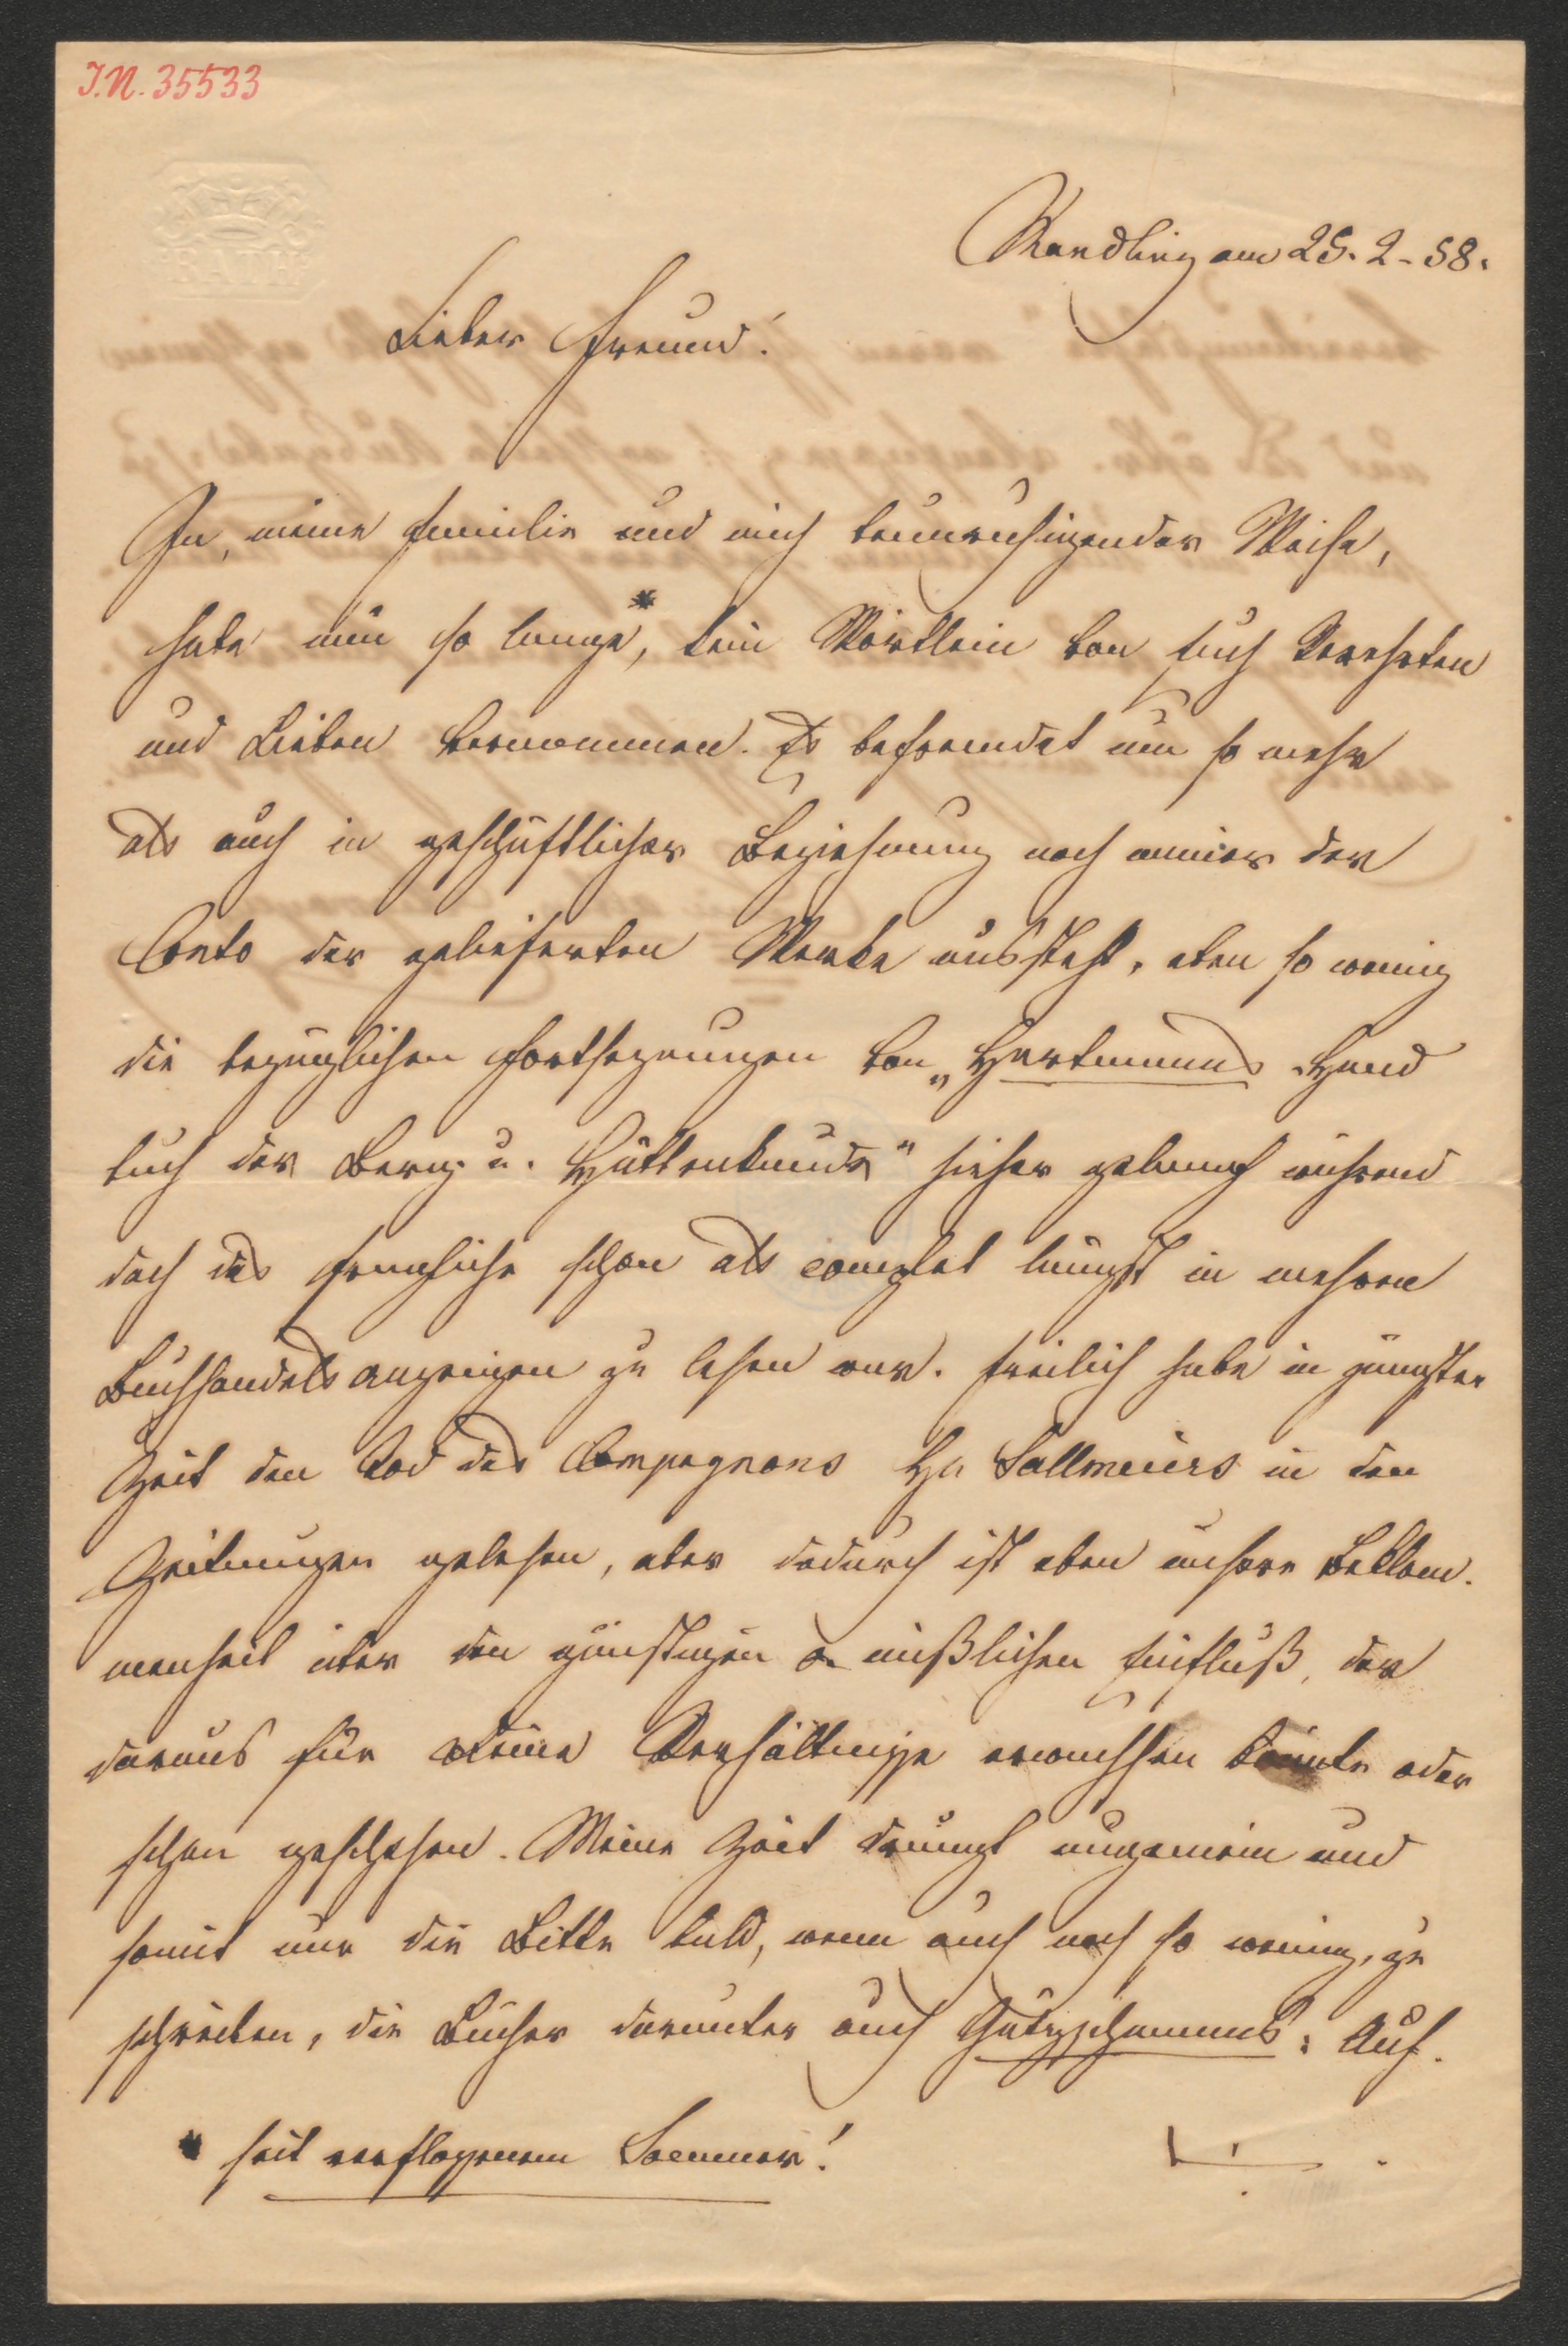 I.N. 35533
Mandling am 25.2.58.
Lieber Freund!
In, meine Familie und mich beunruhigender Weise,
habe nun so lange*, kein Wörtlein von Euch Verehrten
und Lieben vernommen. Es befremdet um so mehr
als auch in geschäftlicher Beziehung noch immer der
Conto der gelieferten Werke aussteht, eben so wenig
die bezüglichen Fortsetzungen von „Hartmanns Hand
buch der Berg- u. Hüttenkunde" hieher gelangt während
doch das fragliche schon als complet längst in mehren
Buchhandels anzeigen zu lesen war. Freilich habe in jüngster
Zeit den Tod des Compagnons Hr Sallmeiers in den
Zeitungen gelesen, aber dadurch ist eben unsere Beklom-
menheit über den günstigen o. mißlichen Einfluß, der
daraus für Deine Verhältnisse erwachsen könnte oder
schon geschehen. Meine Zeit drängt ungemein und
somit nur die Bitte bald, wenn auch noch so wenig, zu
schreiben, die Bücher darunter auch Gätzschmanns: Auf-
* seit verflossenem Sommer!